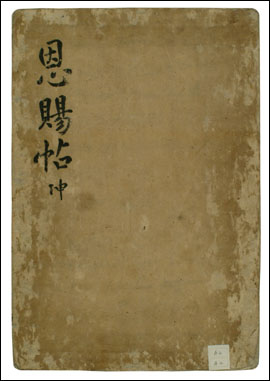 恩賜帖 坤